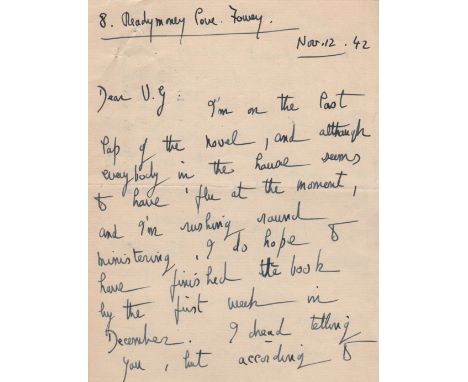 8. Readymoney Cove. Fowey.
Nov. 12. 42
Dear V.G. I'm on the last
lap of the novel, and although
everybody in the house seems
to have 'flu at the moment,
and I'm rushing round
ministering, I do hope to
have finished the book
by the first week in
December. I dread telling
you, but according to